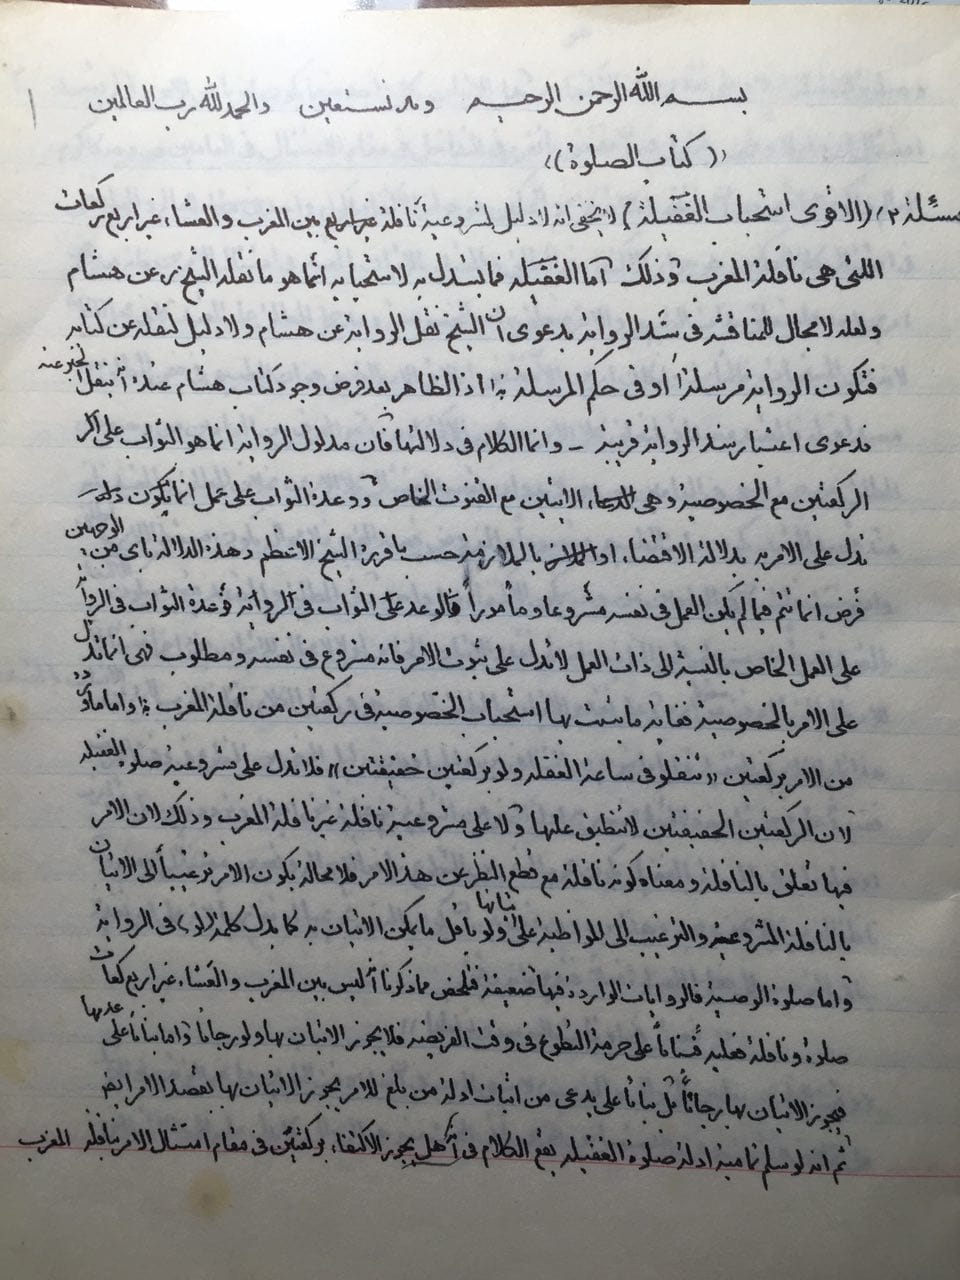 بسم الله الرحمن الرحيم وبه نستعين والحمد لله رب العالمين
((كتاب الصلوة))
مسئلة ٢/ (الاقوى استحباب الغفيلة) لا يخفى انه لا دليل لمشروعية نافلة بين المغرب والعشاء غير اربع ركعات
اللتى هى نافلة المغرب وذلك اما الغفيلة فما يستدل به لاستحبابه انما هو ما نقله الشيخ ره عن هشام
ولعله لا مجال للمناقشة فى سند الرواية بدعوى ان الشيخ نقل الرواية عن هشام ولا دليل لنقله عن كتابه
فتكون الرواية مرسلة او فى حكم المرسلة اذ الظاهر بعد فرض وجود كتاب هشام عنده
فدعوى اعتبار سند الرواية قريبة - وانما الكلام فى دلالتها فان مدلول الرواية انما هو الثواب على
الركعتين مع الخصوصية وهى الاتيتين مع القنوت الخاص ووعدة الثواب على عمل انما يكون
تدل على الامر به بدلالة الاقتضاء او بالملازمة حسب ما قربه الشيخ الاعظم وهذه الدلالة باى من الوجهين
فرض انما تتم فيما لم يكن العمل فى نفسه مشروعا ومأموراً فالوعد على الثواب فى الرواية وعدة الثواب فى الرواية
على العمل الخاص بالنسبة الى ذات العمل لا تدل على ثبوت الامر فانه مشروع فى نفسه ومطلوب فهى انما تدل
على الامر بالخصوصية فغاية ما يثبت بها استحباب الخصوصية فى ركعتين من نافلة المغرب واما ما
من الامر بركعتين ((تنفلوا فى ساعة الغفلة ولو بركعتين خفيفتين)) فلا تدل على مشروعية صلوة الغفيلة
لان الركعتين الخفيفتين لا تنطبق عليها ولا على مشروعية نافلة غير نافلة المغرب وذلك لان الامر
فيها تعلق بالنافلة ومعناه كونه نافلة مع قطع النظر عن هذا الامر فلا محالة يكون الامر ترغيباً الى الاتيان
بالنافلة المشروعة والترغيب الى المواظبة على اتيانها ولو باقل ما يمكن الاتيان به كما يدل كلمة (لو) فى الرواية
واما صلوة الوصية فالروايات الواردة فيها ضعيفة فتلخص مما ذكرنا انه ليس بين المغرب والعشاء غير اربع ركعات
صلوة ونافلة فعليه فبناءاً على حرمة التطوع فى وقت الفريضة فلا يجوز الاتيان بها ولو رجاءاً واما بناءاً على عدمها
فيجوز الاتيان بها رجاءاً بل بناءاً على ما يدعى من اثبات ادلة من بلغ للامر يجوز الاتيان بها بقصد الامر ايضا
ثم انه لو سلم تمامية ادلة صلوة الغفيلة يقع الكلام فى انه هل يجوز الاكتفاء بركعتين فى مقام امتثال الامر بنافلة المغرب